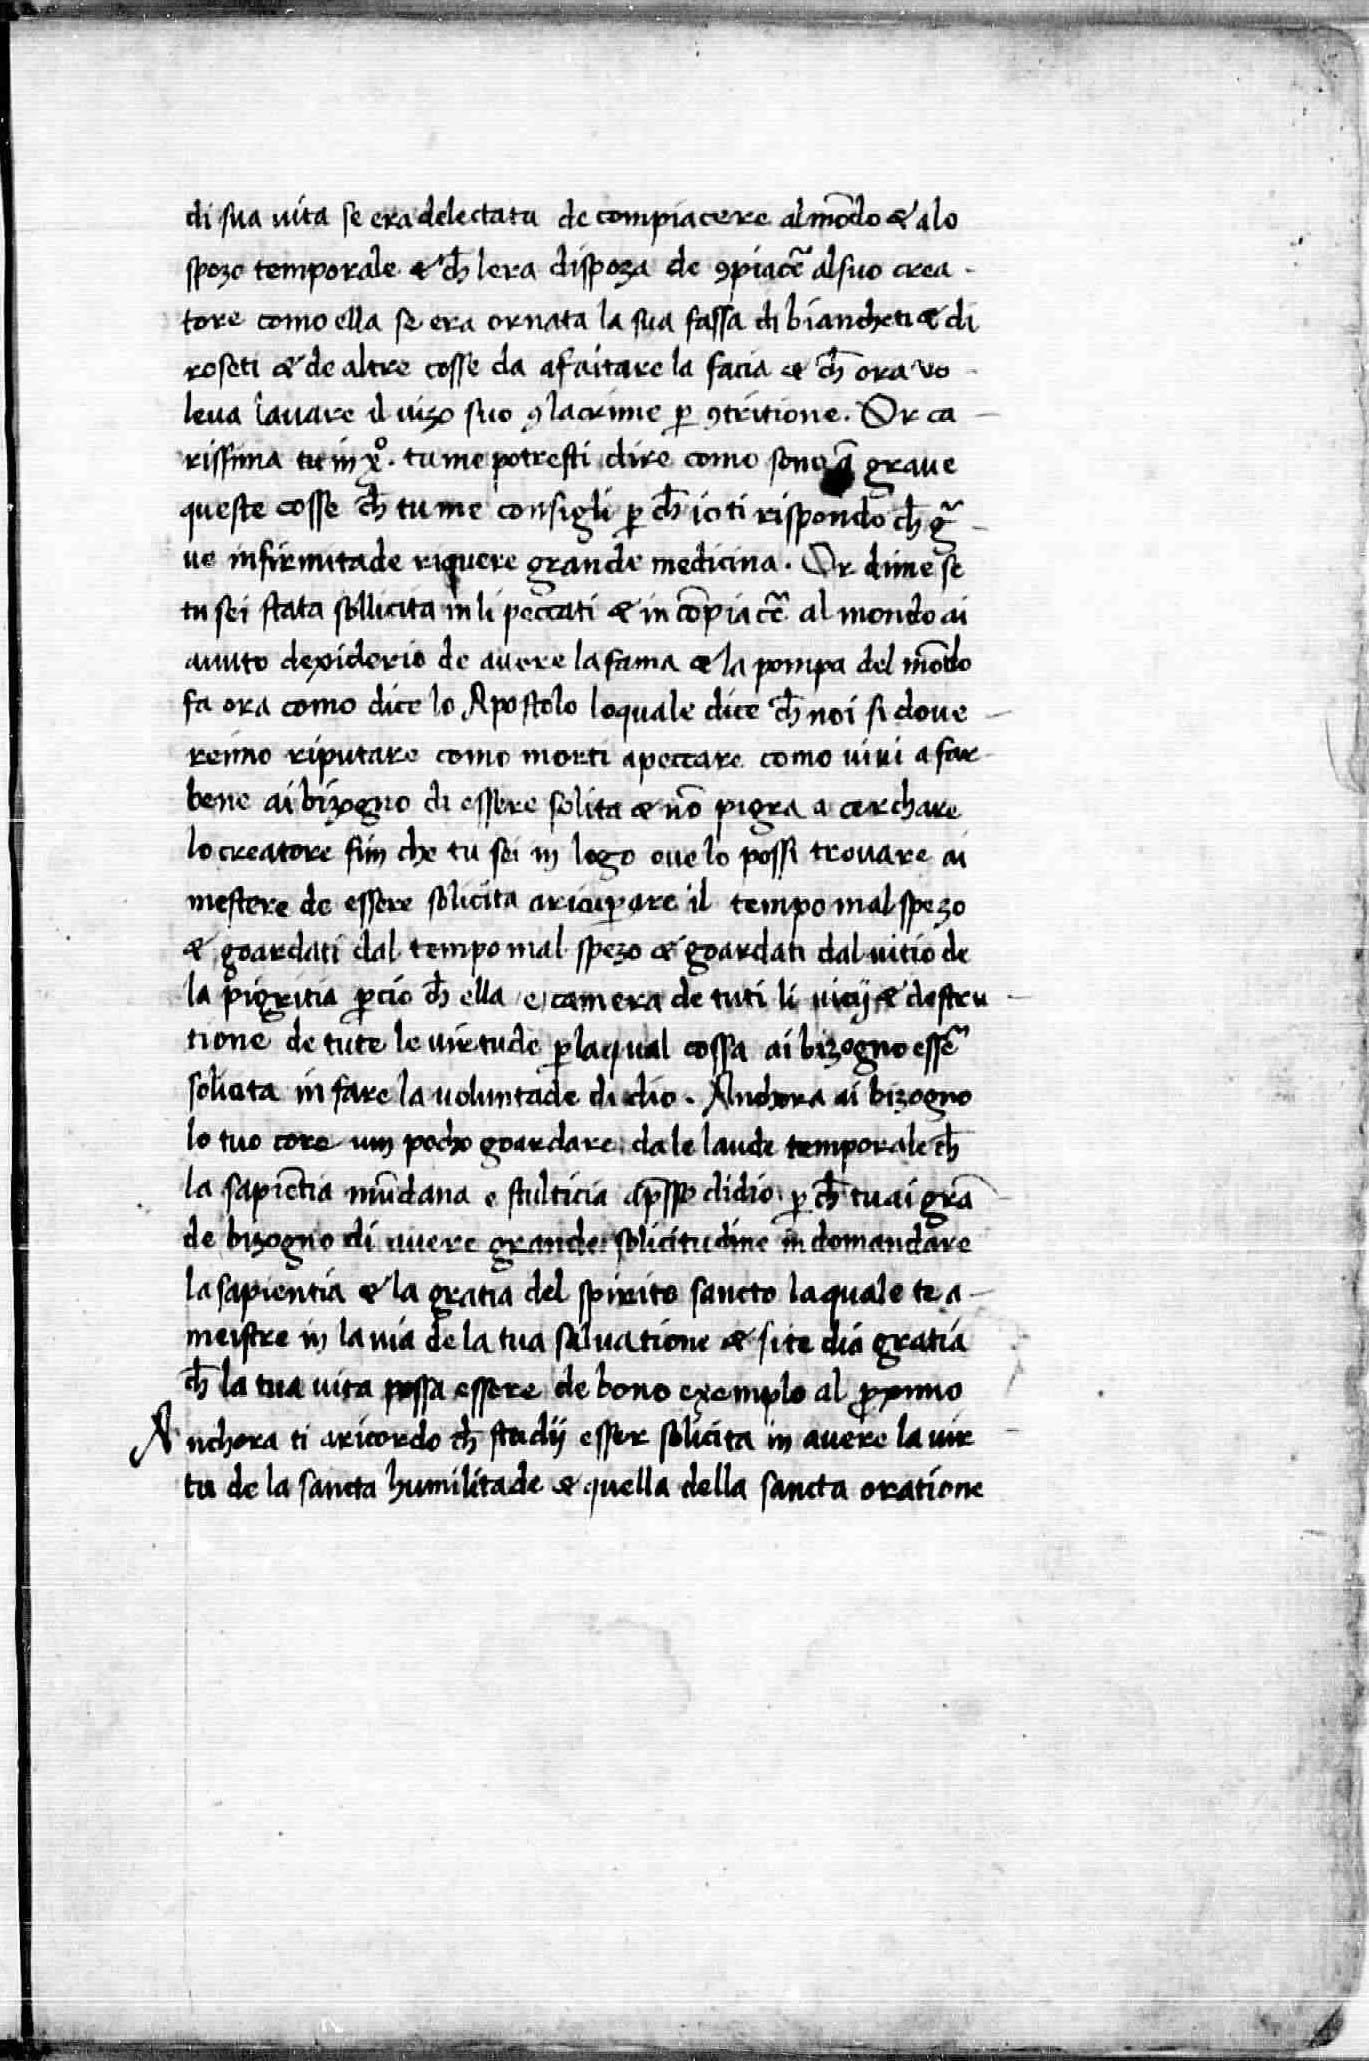 di sua uita se era delectata de compiacere al mõdo & alo
spozo temporale & ch̄ lera dispoza de ꝯpiacẽ al suo crea -
tore como ella se era ornata la sua fassa di biancheti & di
roseti & de altre cosse da afaitare la facia & ch̄ ora vo -
leua lauare il uizo suo ꝯ lacrime ꝑ ꝯtritione. Or ca -
rissima tu in xº. tu me potresti dire como sono grave
queste cosse ch̄ tu me consigli ꝑ ch̄ io ti rispondo ch̄ gᷓ -
ue infirmitade riquere grande medicina. Or dime se
tu sei stata sollicita in li peccati & in cõpiacẽ al mondo ai
auuto dexiderio de auere la fama & la pompa del mõdo
fa ora como dice lo Apostolo loquale dice ch̄ noi si doue -
remo riputare como morti a peccare como uiui a far -
bene ai bizogno di essere solita & nõ pigra a cerchare
lo creatore fim che tu sei in logo oue lo possi trouare ai
mestere de essere solicita a ricuꝑare il tempo mal spezo
& goardati dal tempo mal spezo & goardati dal uitio de
la pigritia ꝑcio ch̄ ella e camera de tuti li uicij & destru -
tione de tute le uirtude ꝑ laqual cossa ai bizogno essẽ
solicita in fare la uoluntade di dio. Anchora ai bizogno
lo tuo core um pocho goardare da le laude temporale ch̄
la sapiẽtia mũdana e stulticia ap̄sso di dio ꝑ ch̄ tu ai grã -
de bizogno di auere grande solicitudine in domandare
la sapientia & la gratia del spirito sancto laquale te a -
meistre in la uia de la tua saluatione & si te dia gratia
ch̄ la tua uita possa essere de bono exemplo al ꝓximo
Anchora ti aricordo ch̄ studij esser solicita in auere la uir -
tu de la sancta humilitade & quella della sancta oratione